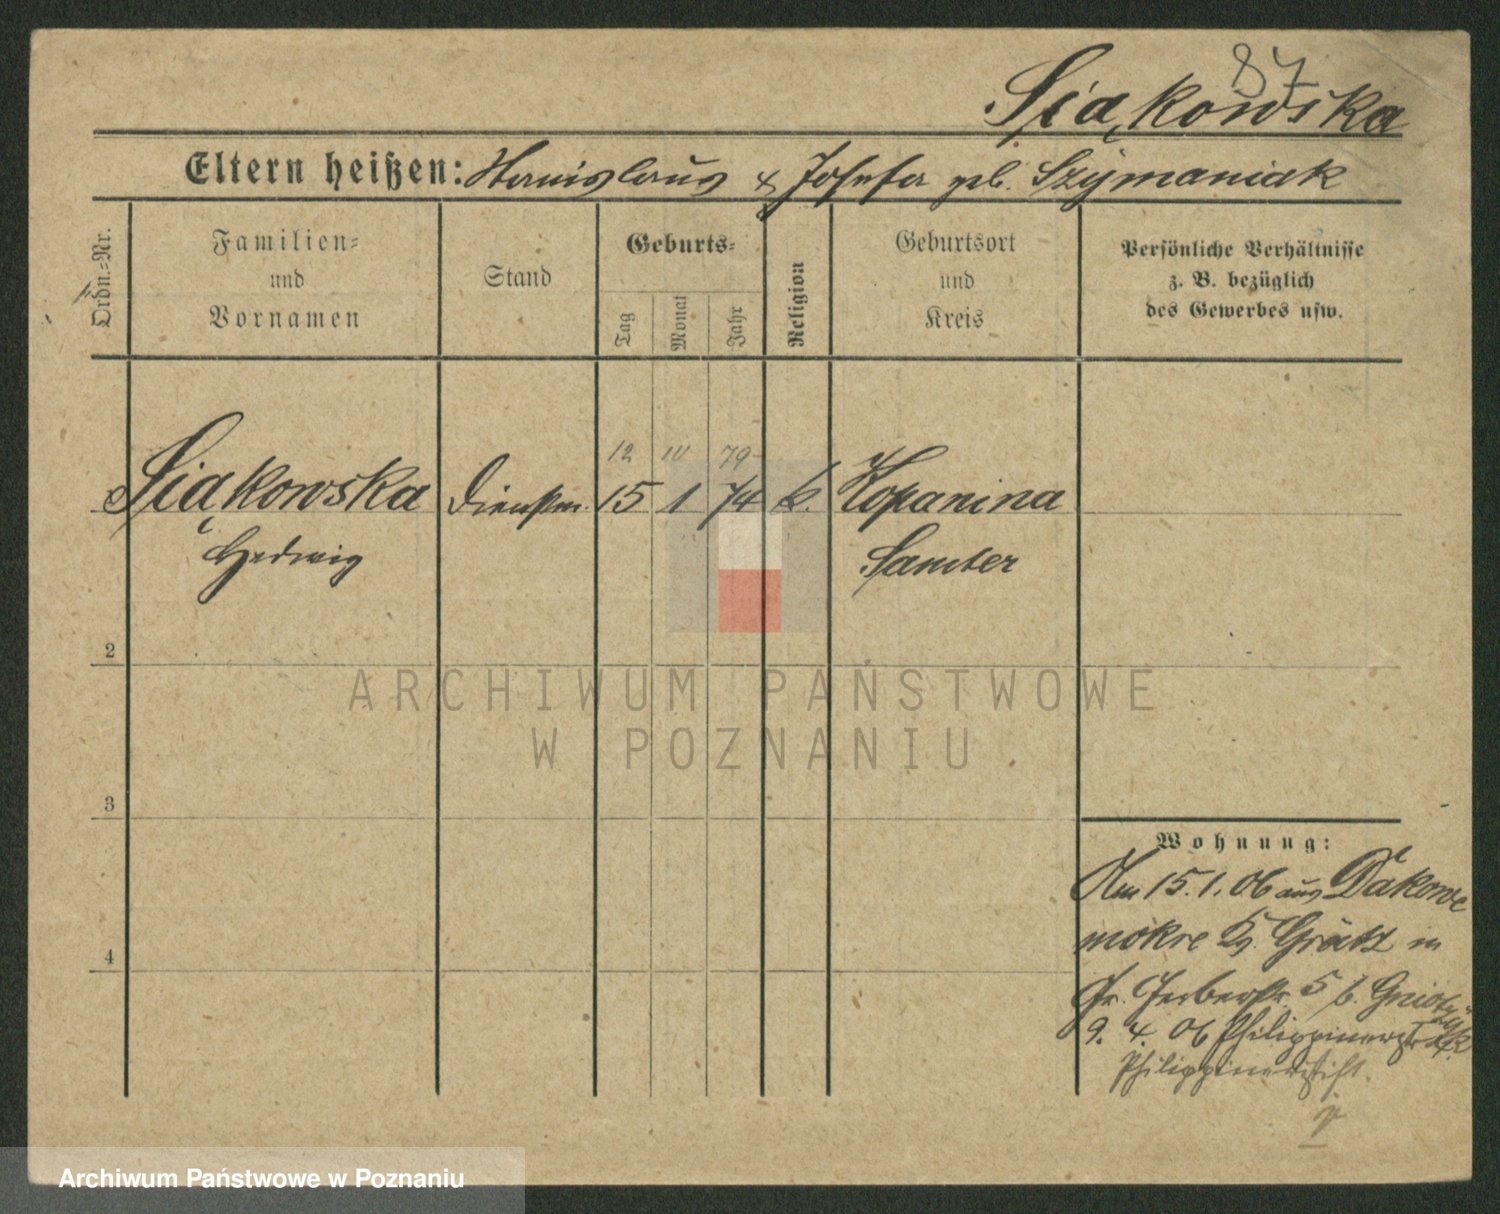 87
Siąkowska
Eltern heißen: Stanislaus & Josefa geb. Szymaniak
Ordn.-Nr.
Familien-
und
Vornamen
Stand
Geburts-
Tag
Monat
Jahr
Religion
Geburtsort
und
Kreis
Persönliche Verhältnisse
z. B. bezüglich
des Gewerbes usw.
12 IV 79
Siąkowska Dienstm. 15 1 74 k. Kopanina
Hedwig Samter
2
ARCHIWUM PAŃSTWOWE
W POZNANIU
3
Wohnung:
Am 15.1.06 aus Dakowe
mokre Kr. Grätz in
Gr. Gerberstr. 5 b.
9. 4. 06
Philippinenstift.
4
Archiwum Państwowe w Poznaniu